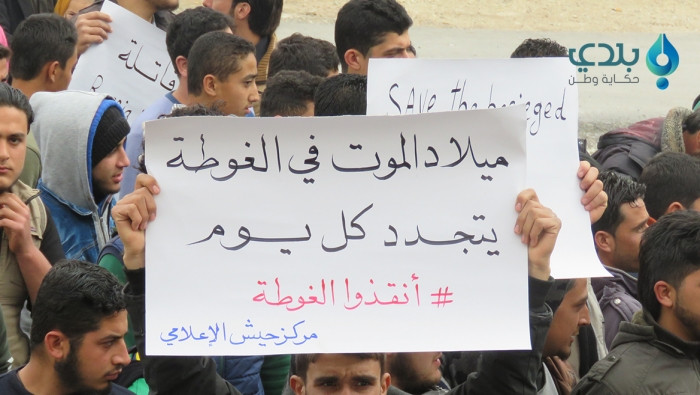 ميلاد الموت في الغوطة
يتجدد كل يوم
# أنقذوا الغوطة
مركز جيش الإعلامي
Save the besieged
قاتلة
بلدي
حكاية وطن